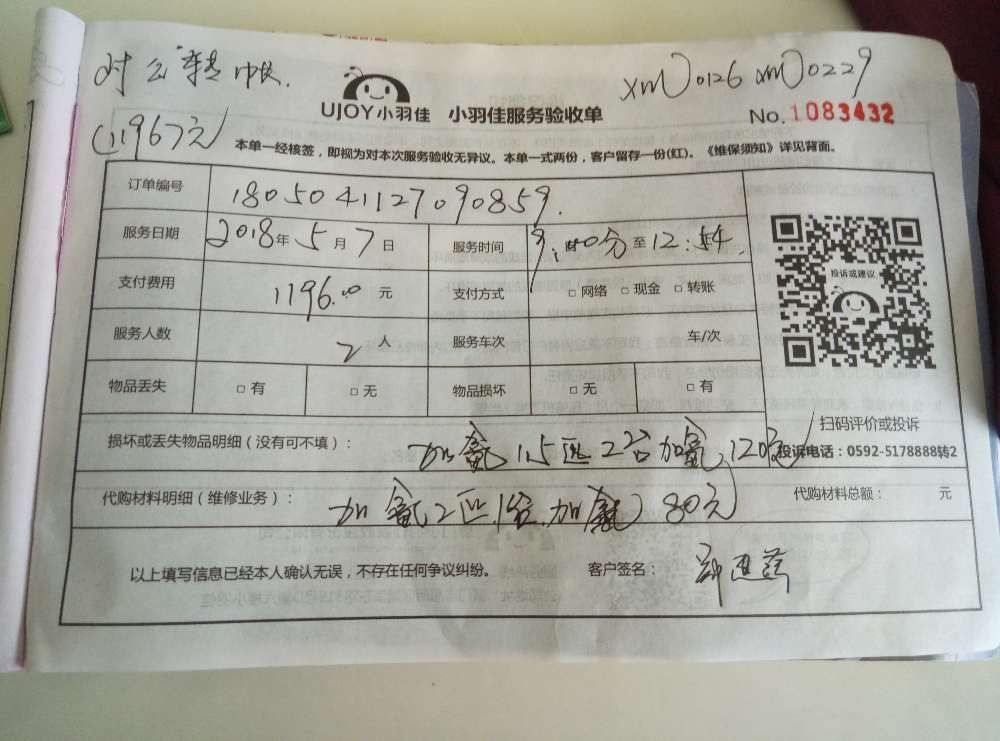 对公转帐. xm0126 xm0229
(1196元)
UJOY小羽佳 小羽佳服务验收单 No.1083432
本单一经核签，即视为对本次服务验收无异议。本单一式两份，客户留存一份(红)。《维保须知》详见背面。
订单编号 1805041127090859.
服务日期 2018年5月7日 服务时间 9:00分至12:54.
支付费用 1196.0元 支付方式 □网络 □现金 □转账
投诉或建议
服务人数 2人 服务车次 车/次
物品丢失 □有 □无 物品损坏 □无 □有
扫码评价或投诉
损坏或丢失物品明细（没有可不填）： 加氟1.5匹2台加氟120元 投诉电话：0592-5178888转2
代购材料明细（维修业务）： 加氟2匹1台.加氟80元 代购材料总额： 元
以上填写信息已经本人确认无误，不存在任何争议纠纷。 客户签名：